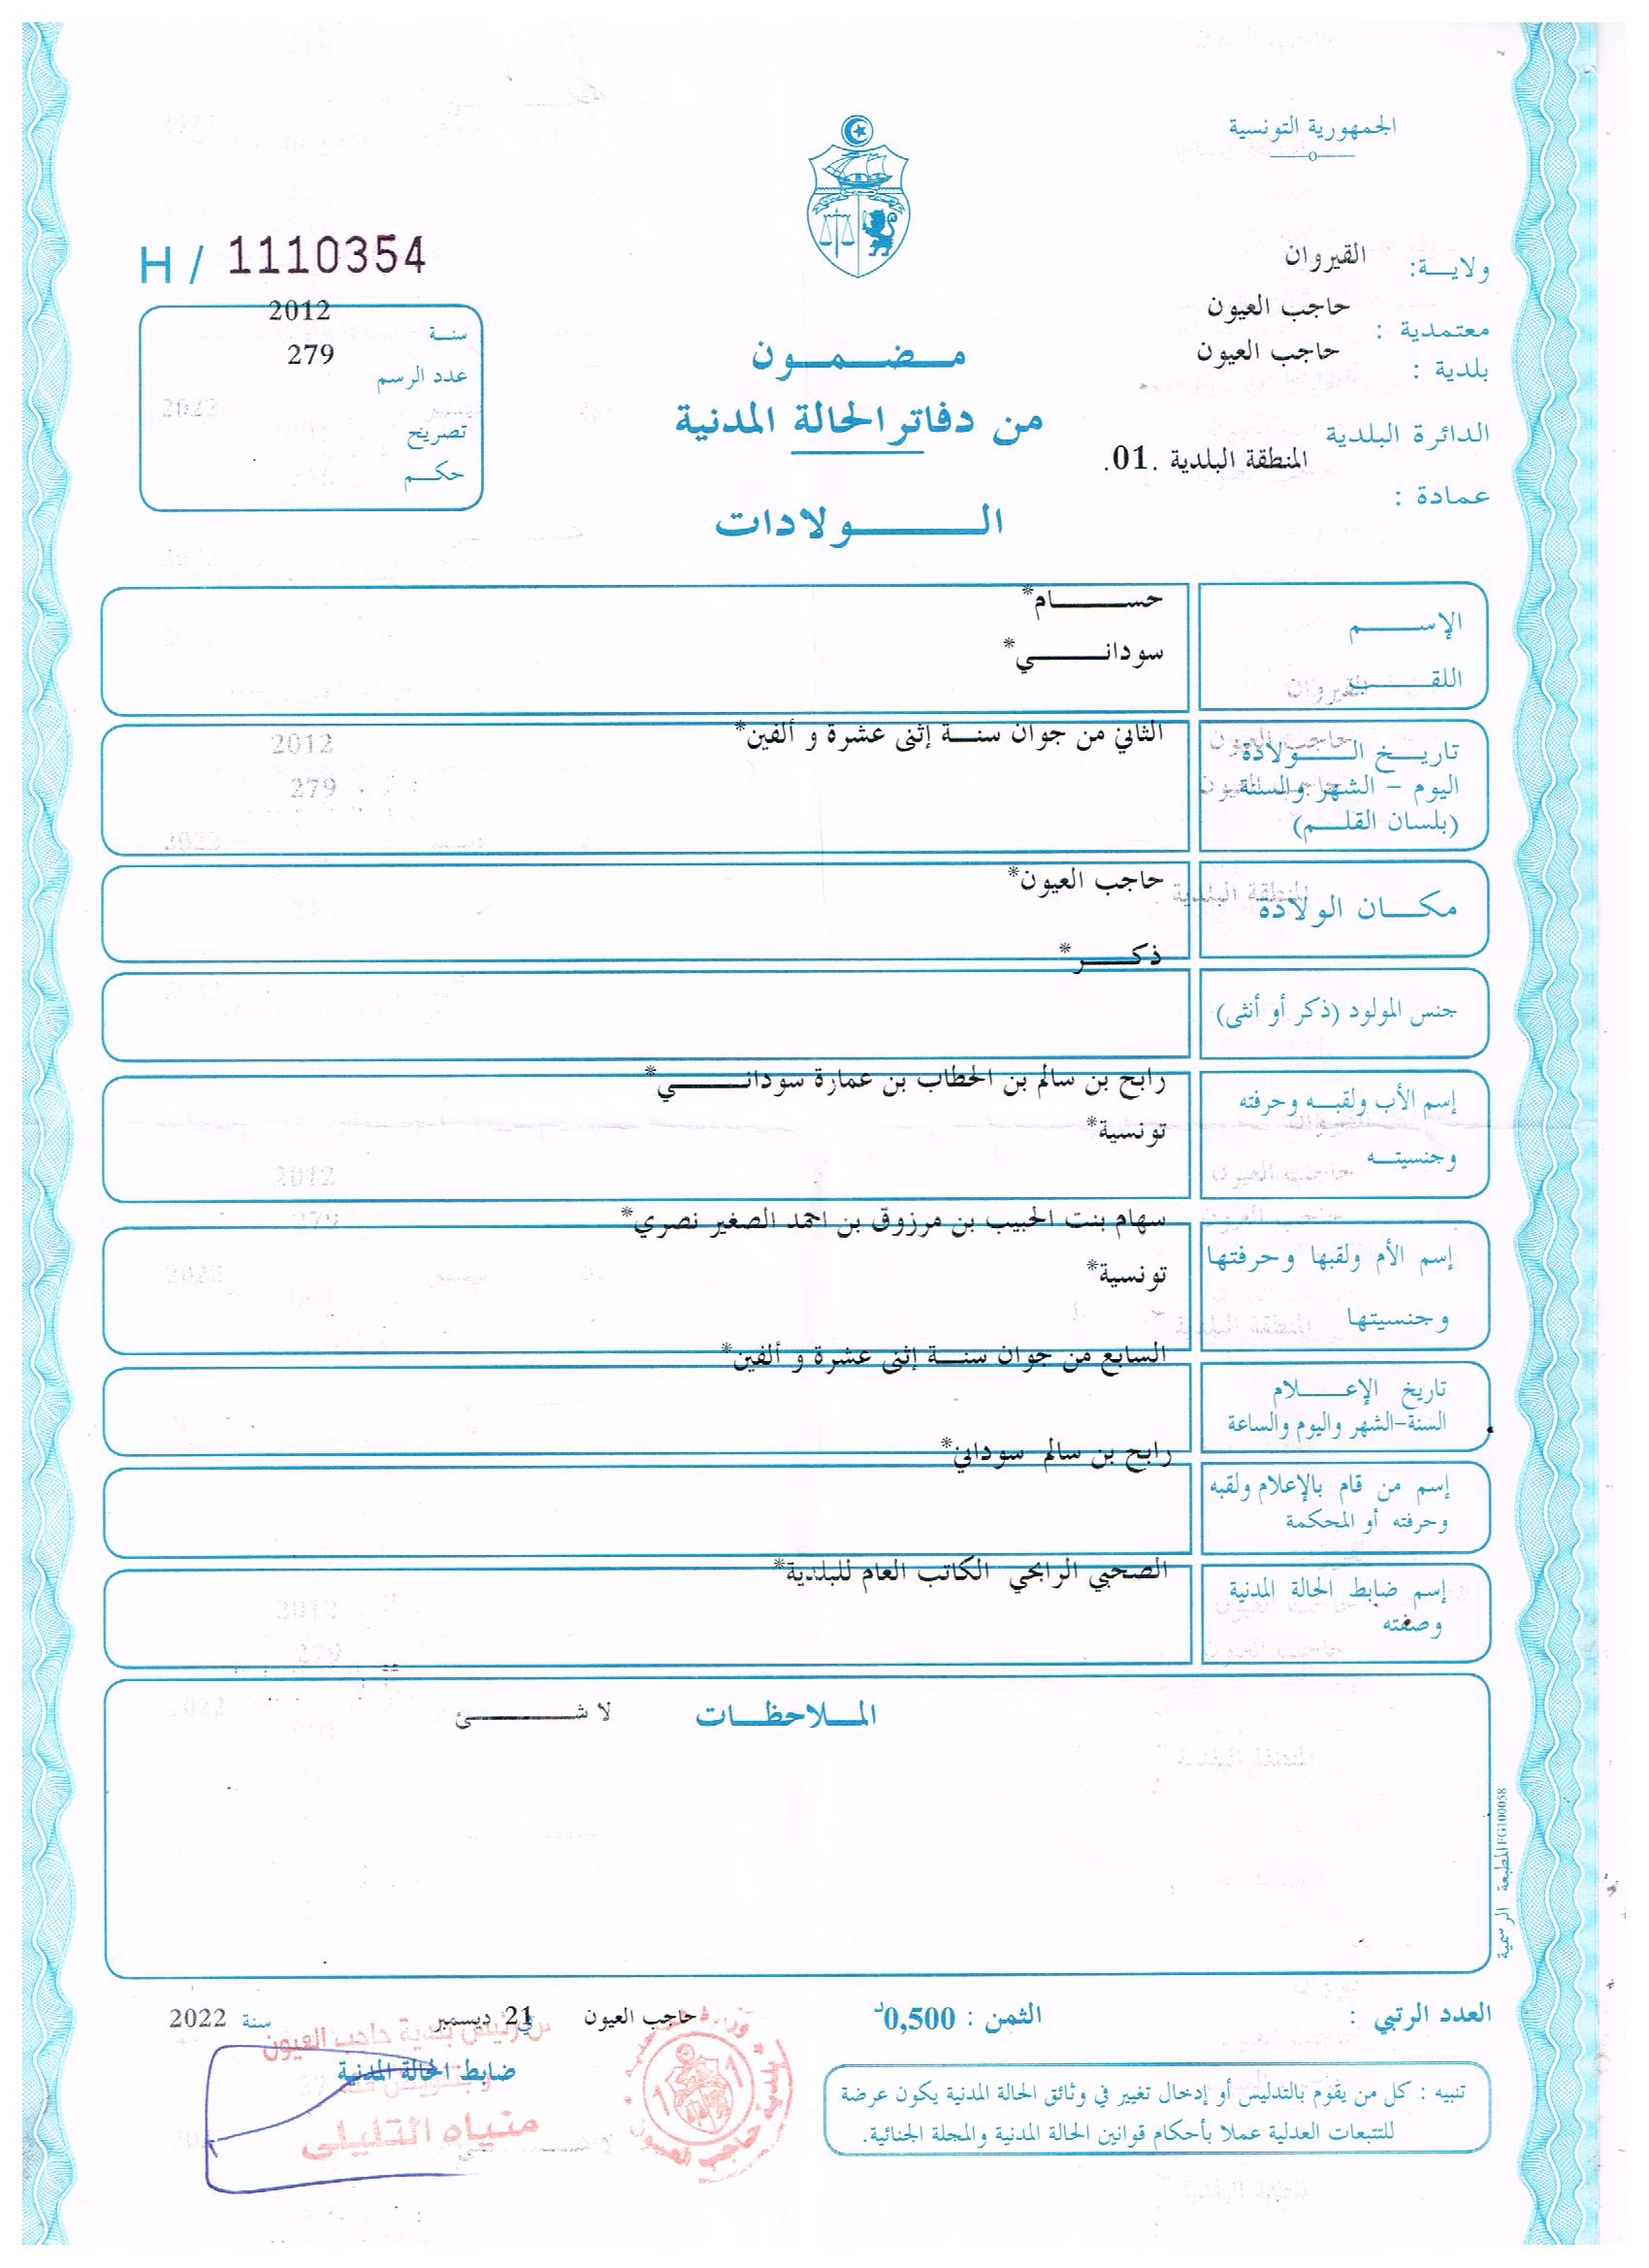 الجمهورية التونسية
H / 1110354
ولايـــة: القيروان
معتمدية : حاجب العيون
بلدية : حاجب العيون
الدائرة البلدية المنطقة البلدية .01.
عمادة :
سنـة 2012
عدد الرسم 279
تصريح
حكــم
مـــضـــمـــون
من دفاتر الحالة المدنية
الـــــــولادات
الإســـــم حســـــام*
اللقـــــب سودانـــــي*
تاريـــخ الـــــولادة الثاني من جوان سنـــة إثنى عشرة و ألفين*
اليوم – الشهر والسنة
(بلسان القلـــم)
مكـــان الولادة حاجب العيون*
ذكـــــر*
جنس المولود (ذكر أو أنثى)
إسم الأب ولقبـــه وحرفته رابح بن سالم بن الحطاب بن عمارة سودانـــــي*
وجنسيتـــه تونسية*
إسم الأم ولقبها وحرفتها سهام بنت الحبيب بن مرزوق بن احمد الصغير نصري*
وجنسيتها تونسية*
السابع من جوان سنـــة إثنى عشرة و ألفين*
تاريخ الإعـــــلام
السنة–الشهر واليوم والساعة
رابح بن سالم سوداني*
إسم من قام بالإعلام ولقبه
وحرفته أو المحكمة
إسم ضابط الحالة المدنية الصحبي الرابحي الكاتب العام للبلدية*
وصفته
المـــلاحظـــات لا شـــــئ
المطبعة الرسمية FG100058
العدد الرتبي : الثمن : 0,500د
حاجب العيون في 21 ديسمبر سنة 2022
عن رئيس بلدية حاجب العيون
ضابط الحالة المدنية
حاجب العيون
تنبيه : كل من يقوم بالتدليس أو إدخال تغيير في وثائق الحالة المدنية يكون عرضة
للتتبعات العدلية عملا بأحكام قوانين الحالة المدنية والمجلة الجنائية.